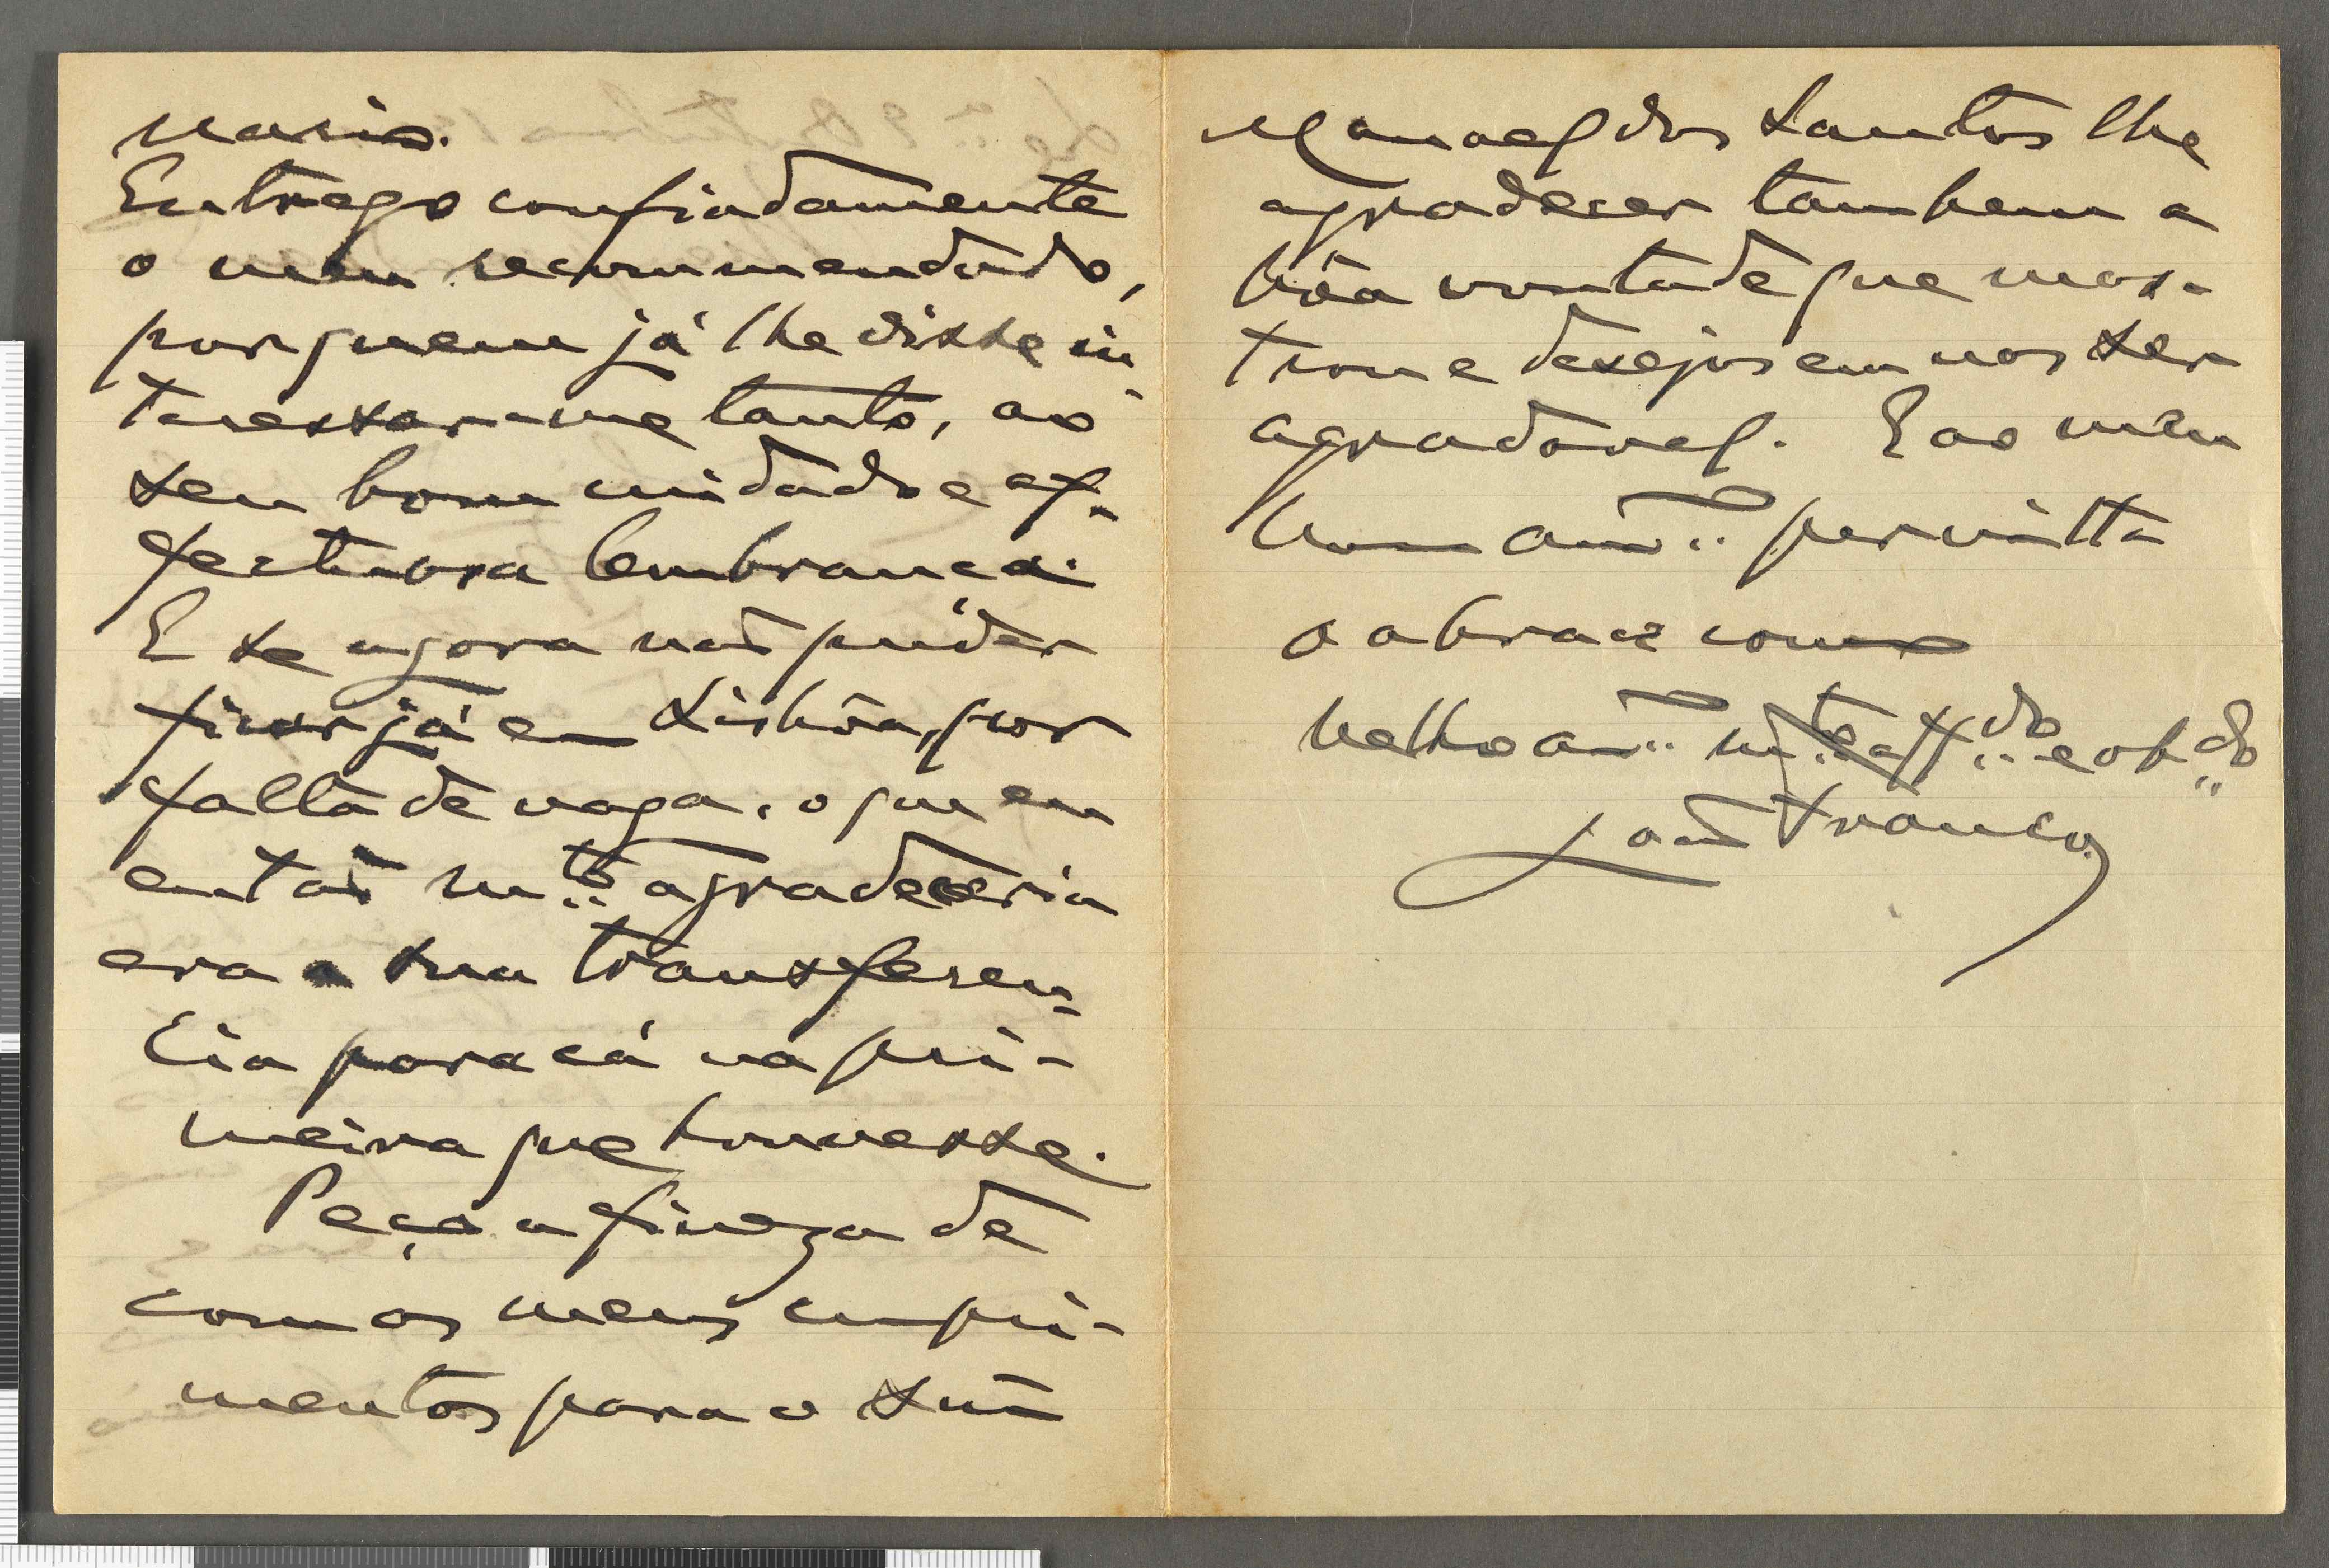 nario.
Entrego confiadamente
o meu recommendado,
por quem já lhe disse in-
teressar-me tanto, ao
seu bom cuidado e af-
fectuosa lembrança.
E se agora não puder
ficar já em Lisbôa, por
falta de vaga, o que eu
então m.to agradeceria
era a sua transferen-
cia para cá na pri-
meira que houvesse.
Peço a fineza de
com os meus cumpri-
mentos para o Snr
Manoel dos Santos lhe
agradecer tambem a
bôa vontade que mos-
trou e desejos em nos ser
agradavel. E ao meu
bom am.o permitta
o abrace como
velho am.o m.to aff.do e ob.do
João Franco